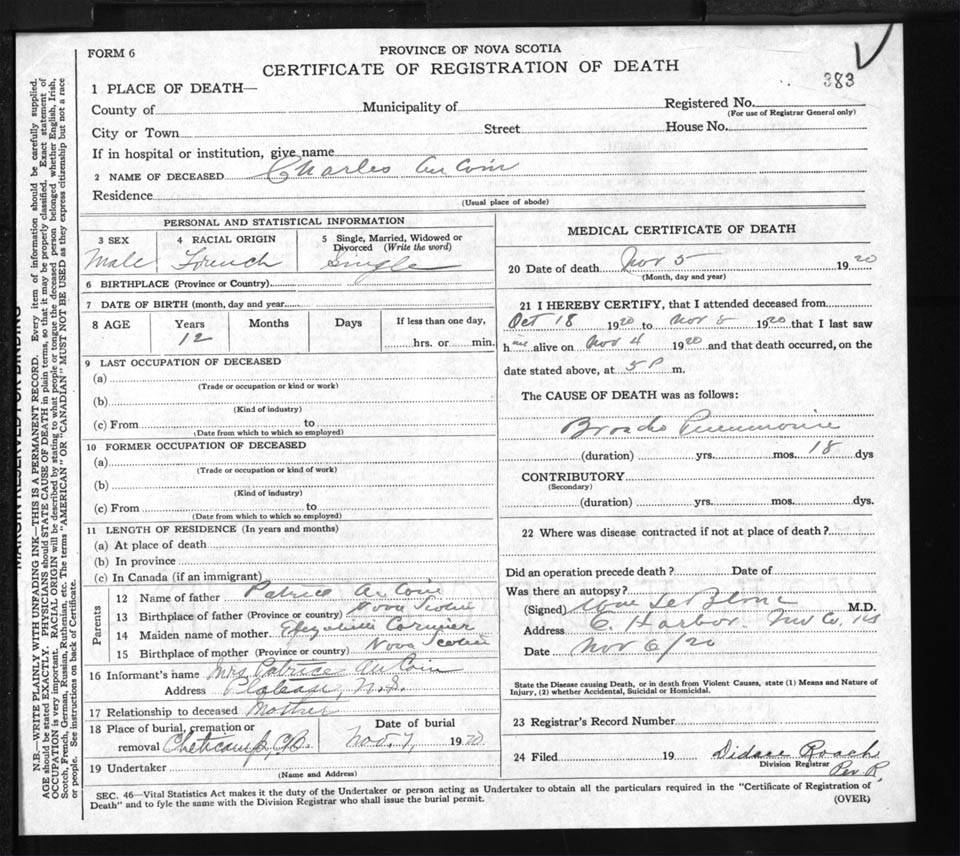 FORM 6
PROVINCE OF NOVA SCOTIA
CERTIFICATE OF REGISTRATION OF DEATH
383
1 PLACE OF DEATH—
County of Municipality of Registered No.
(For use of Registrar General only)
City or Town Street House No.
If in hospital or institution, give name
2 NAME OF DECEASED Charles Au Coin
Residence
(Usual place of abode)
PERSONAL AND STATISTICAL INFORMATION
3 SEX 4 RACIAL ORIGIN 5 Single, Married, Widowed or
Divorced (Write the word)
Male French Single
6 BIRTHPLACE (Province or Country)
7 DATE OF BIRTH (month, day and year)
8 AGE Years Months Days If less than one day,
12 hrs. or min.
9 LAST OCCUPATION OF DECEASED
(a)
(Trade or occupation or kind or work)
(b)
(Kind of industry)
(c) From to
(Date from which to which so employed)
10 FORMER OCCUPATION OF DECEASED
(a)
(Trade or occupation or kind of work)
(b)
(Kind of industry)
(c) From to
(Date from which to which so employed)
11 LENGTH OF RESIDENCE (In years and months)
(a) At place of death
(b) In province
(c) In Canada (if an immigrant)
Parents
12 Name of father Patrice Au Coin
13 Birthplace of father (Province or country) Nova Scotia
14 Maiden name of mother Cormier
15 Birthplace of mother (Province or country) Nova Scotia
16 Informant's name Mrs Patrice Au Coin
Address N.S.
17 Relationship to deceased Mother
18 Place of burial, cremation or Date of burial
removal Cheticamp, C.B. Nov. 7, 1920
19 Undertaker
(Name and Address)
MEDICAL CERTIFICATE OF DEATH
20 Date of death Nov 5 1920
(Month, day and year)
21 I HEREBY CERTIFY, that I attended deceased from
Oct 18 1920 to Nov 5 1920 that I last saw
him alive on Nov 4 1920 and that death occurred, on the
date stated above, at 5 P m.
The CAUSE OF DEATH was as follows:
Broncho Pneumonia
(duration) yrs. mos. 18 dys
CONTRIBUTORY
(Secondary)
(duration) yrs. mos. dys.
22 Where was disease contracted if not at place of death?
Did an operation precede death? Date of
Was there an autopsy?
(Signed) LeBlanc M.D.
Address E. Harbor. Inv Co. NS
Date Nov 6/20
State the Disease causing Death, or in death from Violent Causes, state (1) Means and Nature of
Injury, (2) whether Accidental, Suicidal or Homicidal.
23 Registrar's Record Number
24 Filed 19 Didace Roach
Division Registrar
Per R.
SEC. 46—Vital Statistics Act makes it the duty of the Undertaker or person acting as Undertaker to obtain all the particulars required in the "Certificate of Registration of
Death" and to fyle the same with the Division Registrar who shall issue the burial permit. (OVER)
MARGIN RESERVED FOR BINDING
N.B.—WRITE PLAINLY WITH UNFADING INK—THIS IS A PERMANENT RECORD. Every item of information should be carefully supplied.
AGE should be stated EXACTLY. PHYSICIANS should STATE CAUSE OF DEATH in plain terms, so that it may be properly classified. Exact statement of
OCCUPATION is very important. RACIAL ORIGIN will be described by stating to what people or tongue the deceased person belonged whether English, Irish,
Scotch, French, German, Russian, Ruthenian, etc. The terms "AMERICAN" OR "CANADIAN" MUST NOT BE USED as they express citizenship but not a race
or people. See instructions on back of Certificate.